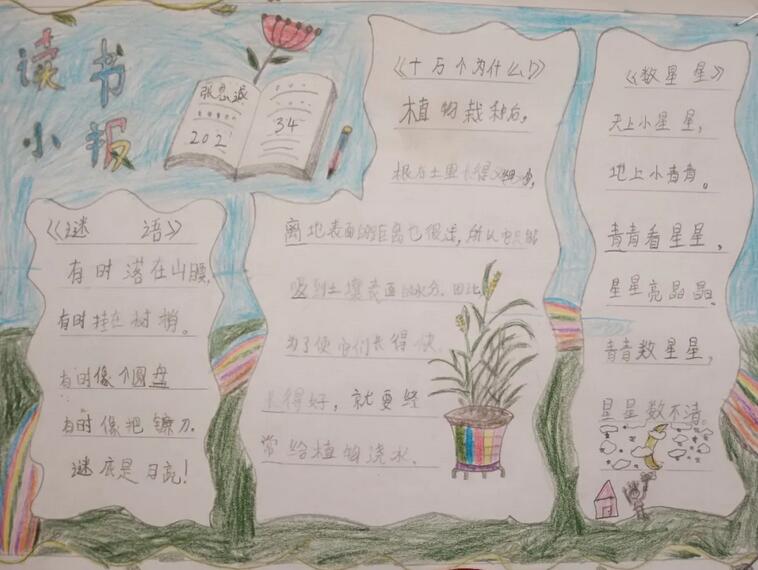 读书
小报
张思诚
202
34
《谜 语》
有时落在山腰,
有时挂在树梢。
有时像个圆盘
有时像把镰刀.
谜底是月亮!
《十万个为什么!》
植物栽种后,
根在土里长得
离地表面的距离也很近,所以也只能
吸到土壤表面的水分.因此,
为了使它们长得快.
长得好,就要经
常给植物浇水.
《数星星》
天上小星星,
地上小青青。
青青看星星,
星星亮晶晶.
青青数星星,
星星数不清。